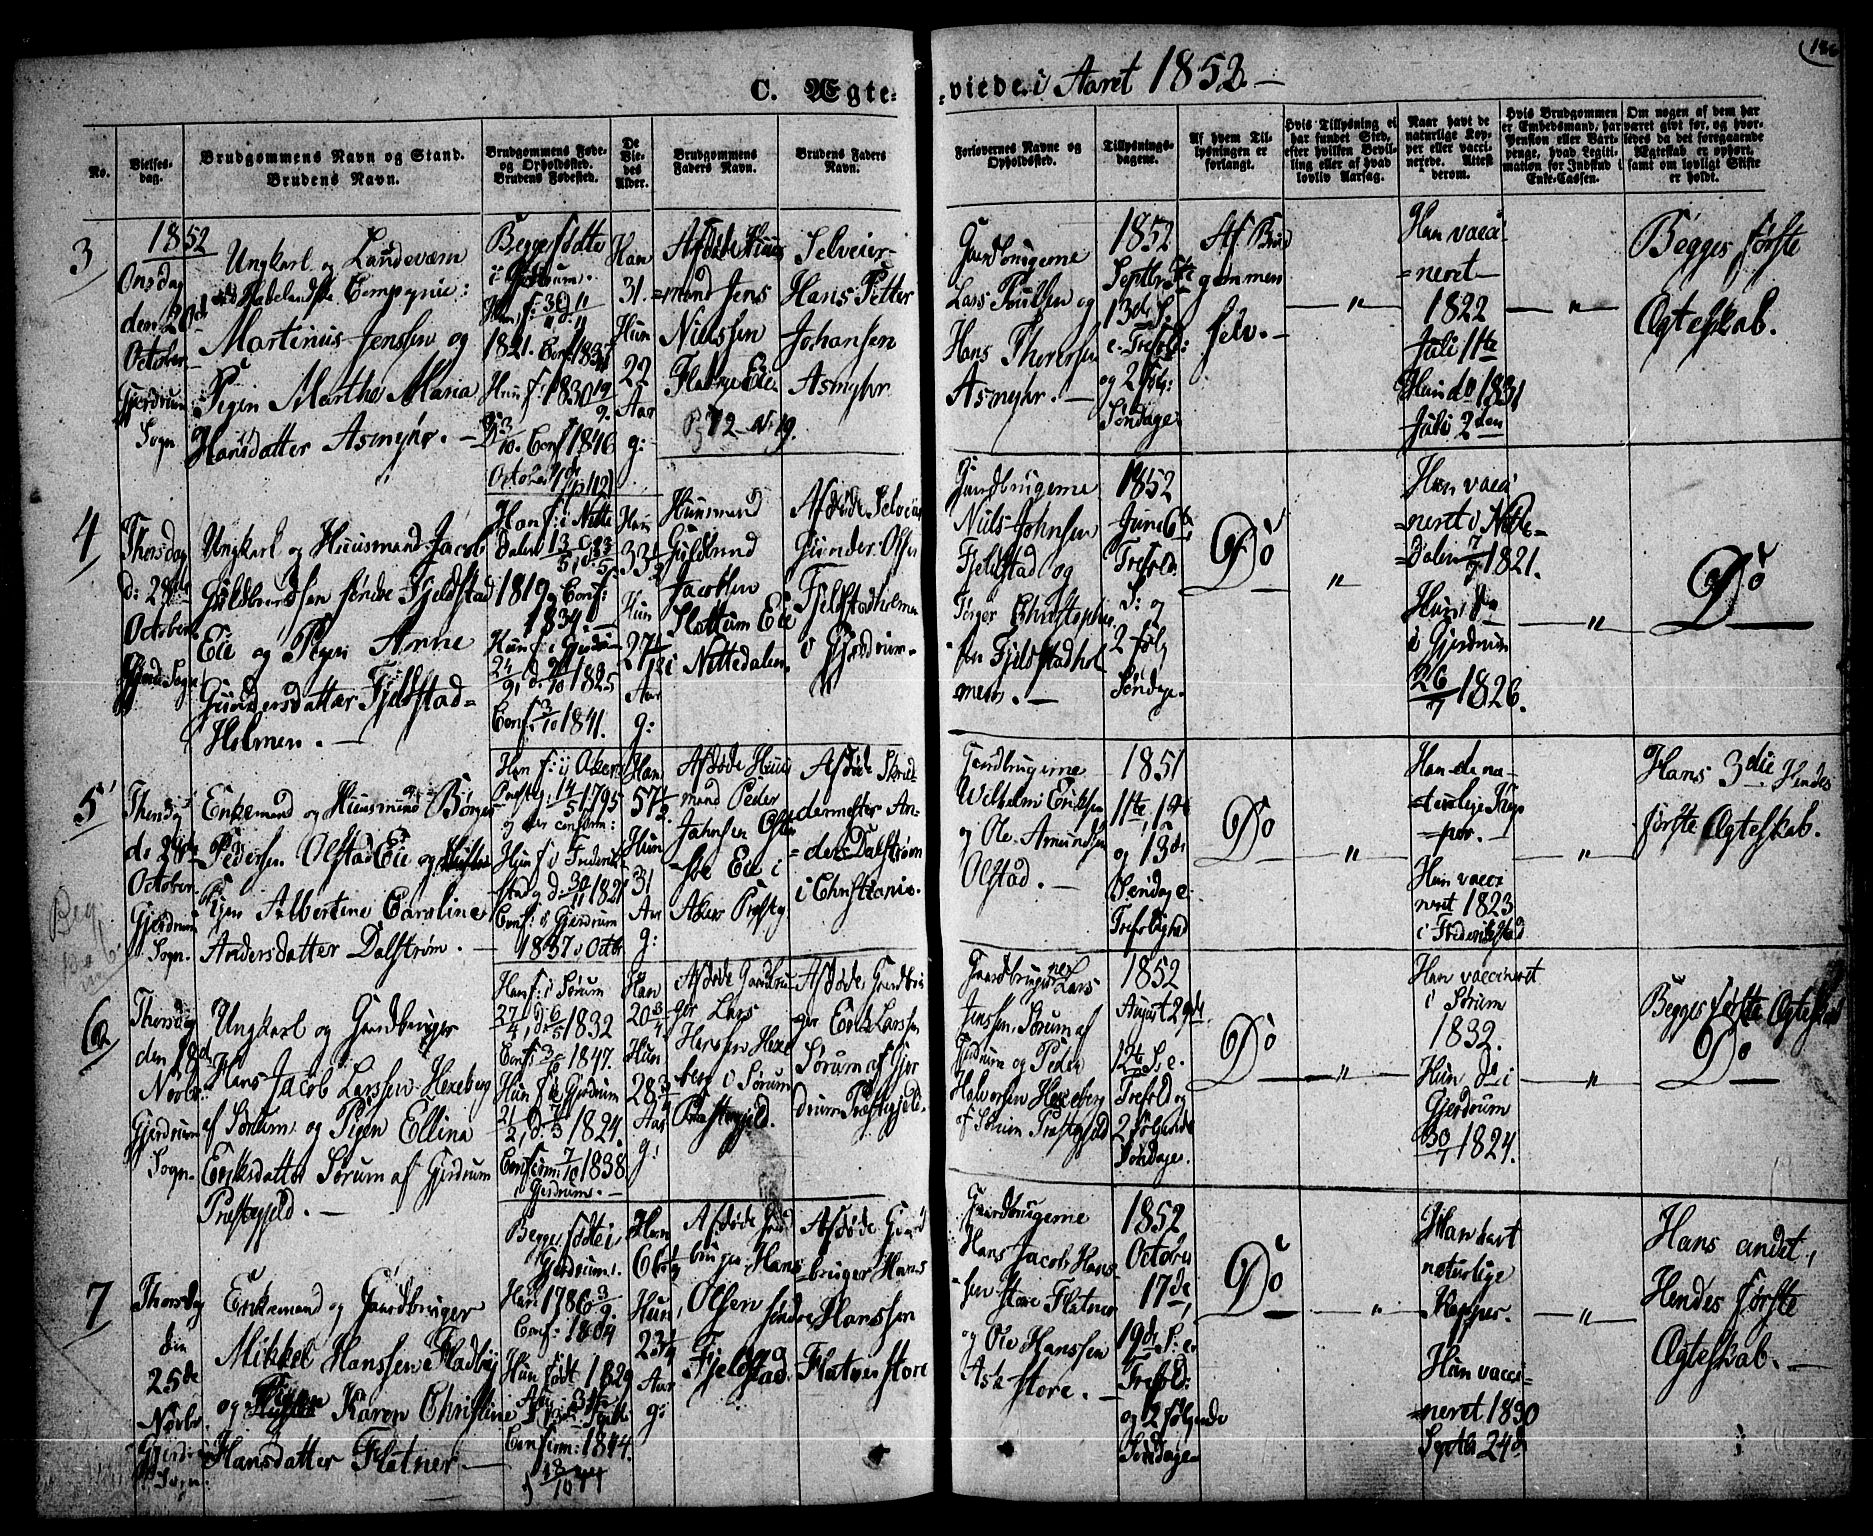 C. Ægte- -viede i Aaret 1852.
No.
Vielses-
dag.
Brudgommens Navn og Stand.
Brudens Navn.
Brudgommens Føde-
og Opholdssted.
Brudens Fødested.
De
Vie-
des
Alder.
Brudgommens
Faders Navn.
Brudens Faders
Navn.
Forlovernes Navne og
Opholdssted.
Tillysnings-
dagene.
Af hvem Til-
lysningen er
forlangt.
Hvis Tillysning ei
har fundet Sted,
efter hvilken Bevil-
ling eller af hvad
lovlig Aarsag.
Naar havt de
naturlige Kop-
per eller vacci-
nerede. Attest
derom.
Hvis Brudgommen
er Embedsmand, har
Pension eller Vart-
penge, hvad Legiti-
mation for Indskud i
Enke-Cassen.
Om nogen af dem har
været gift før, og hvor-
ledes da det foregaaende
Ægteskab er ophørt,
samt om lovligt Skifte
er holdt.
3
1852
Onsdag
den 20de
October
Gjerdrum
Sogn.
Ungkarl og Landeværn
Compagnie:
Martinus Jenssen og
Pigen Marthe Maria
Hansdatter Asmyhr. —
Begge fødte
i Gjerdrum.
1821. Conf: 1837
Hun f: 1830
Conf 1846
October
Han
31.
Hun
22
Aar
g:
Afdøde Huus
-mand Jens
Nielssen
Flatner Eie
Selveier
Hans Petter
Johansen
Asmyhr
Gaardbrugerne
Lars Poulsen og
Hans
Asmyhr. —
1852
Septbr 5te
13de S.
e. Trefold:
og 2 følg:
Søndage
Af Brud
gommen
selv. —
— " —
Han vacci
-neret
1822
Juli 11te
Hun do 1831
Juli 2den
— " —
Begges første
Ægteskab.
4
Thorsdag
d: 28de
October
Gjerd: Sogn
Ungkarl og Huusmand Jacob
Guldbrandsen søndre Fjeldstad
Eie og Pigen Anne
Gundersdatter Fjeldstad-
Holmen. —
Han f: i Nitte
dalen
1819 og Conf:
1834
Hun f: i Gjerdrum
1825
Conf: 3/10 1841.
Han
33½
Hun
27
Aar
g:
Huusmand
Guldbrand
Jacobsen
Slattum Eie
i Nittedalen
Afdøde Selveier
Gunder Olsen
Fjeldstadholmen
i Gjerdrum.
Gaardbrugerne
Niels Johnsen
Fjeldstad og
Christopher
-sen Fjeldstadhol
men. —
1852
Juni 6te
Trefold
S: og
2 følg
Søndage.
Do
"
Han vacci
-neret i Nitte-
-dalen 7/9 1821.
Hun do
i Gjerdrum
26/7 1826.
— " —
Do
5
Thorsdag
d: 28de
October
Gjerdrum
Sogn.
Enkemand og Huusmand Børger
Pedersen Olstad Eie og
Pigen Albertine Caroline
Andersdatter Dalstrøm. —
Han f: i Aker
Præstg: 14/5 1795
og der confirm:
Hun f: i Frederik
stad d: 30/11 1821
Conf: i Gjerdrum
1837 i Octb
Han
57½
Hun
31
Aar
g:
Afdøde Huus
mand Peder
Johnsen
Eie i
Aker Præstg
Afdøde Skræd-
dermester An-
-ders Dalstrøm
i Christiania.
Gaardbrugerne
Wilhelm Eriksen
og Ole Amundsen
Olstad. —
1851
11te, 12te
og 13de
Søndage
Trefoldighed
Do
"
Han de na-
-turlige Kop-
-per.
Hun vacci
neret 1823
i Frederikstad
— " —
Hans 3die Hendes
første Ægteskab.
6
Thorsdag
den 18de
Novbr.
Gjerdrum
Sogn.
Ungkarl og Gaardbruger
Hans Jacob Larssen Hexeberg
af Sørum og Pigen Ellina
Eriksdatter Sørum af Gjerdrum
Præstegjeld. —
Han f: i Sørum
27/4, d: 6/5 1832
Conf: 1847.
Hun f: i Gjerdrum
21/2, d: 1824.
Confirm: 7/10 1838
i Gjerdrum. —
Han
20¾
Hun
28¾
Aar
g:
Afdøde Gaardbru-
ger Lars
Hanssen Hexe
berg i Sørum
Præstegjeld.
Afdøde Gaardbru
ger Erik Larssen
Sørum af Gjer
drum Præstegjeld.
Gaardbrugerne Lars
Jenssen Sørum af
Gjerdrum og Peder
Halvorsen Hexeberg
af Sørum Præstegjeld
1852
August 29de
12te S. e.
Trefold og
2 følgende
Søndage.
Do
"
Han vaccineret
i Sørum
1832.
Hun do i
Gjerdrum
30/7 1824.
— " —
Begges første Ægteskab
Do
7
Thorsdag
den
25de
Novbr.
Gjerdrum
Sogn.
Enkemand og Gaardbruger
Mikkel Hanssen Fladbye
og Pigen Karen Christine
Hansdatter Flatner —
Begge fødte i
Gjerdrum.
Han 1786 3/9
Conf: 1804
Hun født 1829
Confirm: 1844.
Han
66
Hun
23
Aar
g:
Afdøde Gaard
bruger Hans
Olsen søndre
Fjeldstad.
Afdøde Gaard
-bruger Hans
Hanssen
Flatner store
Gaardbrugerne
Hans Jacob Hans-
-sen store Flatner
og Ole Hanssen
Ask store. —
1852
October
17de
19de S: e.
Trefold:
og 2 følgende
Søndage
Do
"
Han havt
naturlige
Kopper.
Hun vacci-
-neret 1830
Septbr 24de
— " —
Hans andet,
Hendes første
Ægteskab. —